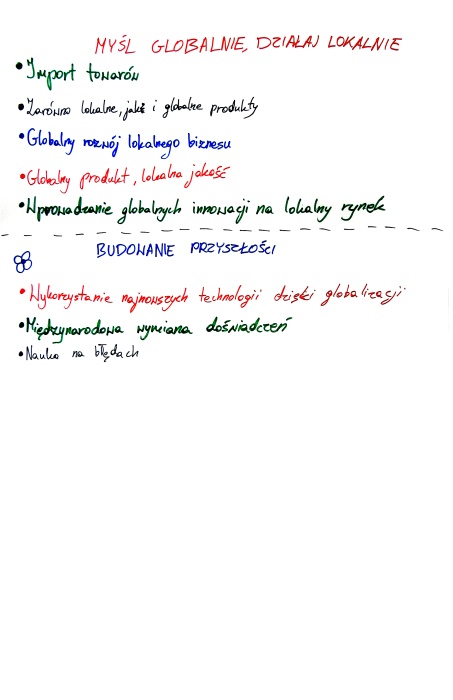 MYŚL GLOBALNIE, DZIAŁAJ LOKALNIE
• Import towarów
• Zarówno lokalne, jaki i globalne produkty
• Globalny rozwój lokalnego biznesu
• Globalny produkt, lokalna jakość
• Wprowadzanie globalnych innowacji na lokalny rynek
BUDOWANIE PRZYSZŁOŚCI
• Wykorzystanie najnowszych technologii dzięki globalizacji
• Międzynarodowa wymiana doświadczeń
• Nauka na błędach